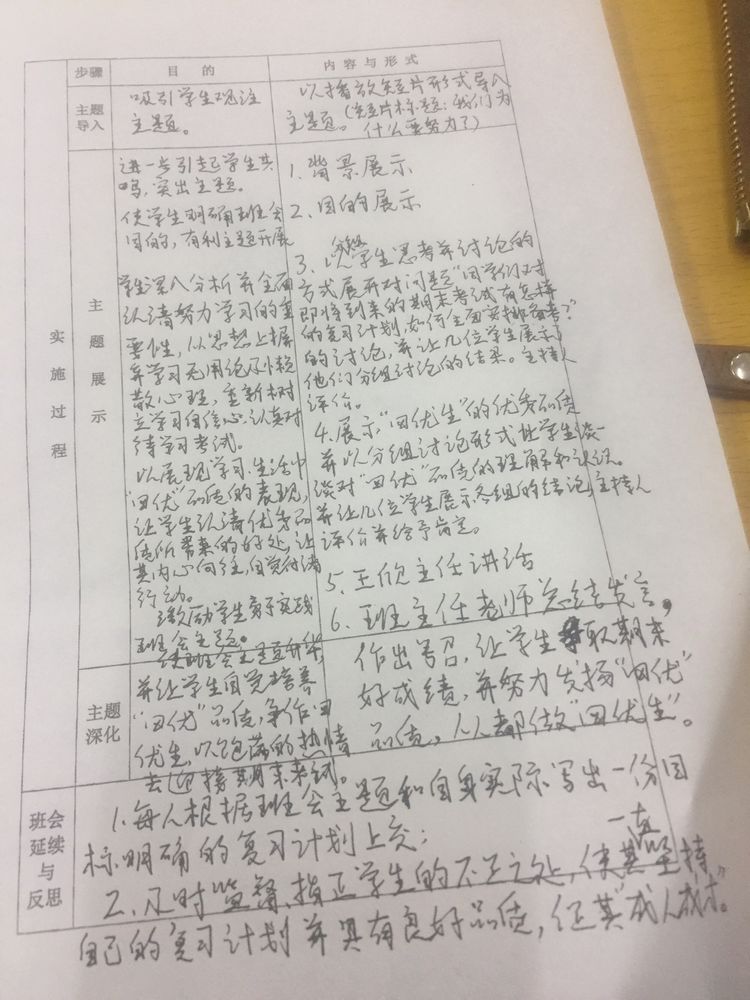 步骤 目的 内容与形式
主题
导入
吸引学生观注
主题。
以播放短片形式导入
主题。(短片标题:我们为
什么要努力了)
实施过程
主题展示
进一步引起学生共
鸣,突出主题。
使学生明确班会
目的,有利主题开展
学生深入分析并全面
认清努力学习的重
要性,从思想上摒
弃学习无用论及小懒
散心理,重新树
立学习自信心,认真对
待学习考试。
以展现学习、生活中
“四优”品质的表现,
让学生认清优秀品
质所带来的好处,让
其内心向往,自觉付诸
行动。
激励学生亲于实践
班会主题。
1. 背景展示
2. 目的展示
3. 以学生思考并讨论的
分组
方式展开对问题“同学们对
即将到来的期末考试有怎样
的复习计划,如何全面安排备考?”
的讨论,并让几位学生展示了
他们分组讨论的结果。主持人
评价。
4. 展示“四优生”的优秀品质
并以分组讨论形式让学生谈一
谈对“四优”品质的理解和认识。
并让几位学生展示各组的结论,主持人
评价并给予肯定。
5. 王欣主任讲话
6. 班主任老师总结发言,
主题
深化
使班会主题升华,
并让学生自觉培养
“四优”品质,争作四
优生,以饱满的热情
去迎接期末考试。
作出号召,让学生取期末
好成绩,并努力发扬“四优”
品质,人人都做“四优生”。
班会
延续
与
反思
1. 每人根据班会主题和自身实际写出一份目
标明确的复习计划上交;
2. 及时监督、指正学生的不足之处,使其坚持
一直
自己的复习计划并具有良好品质,让其“成人成才”。